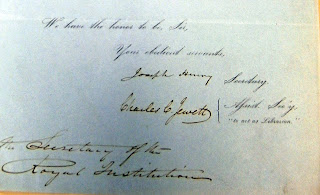 We have the honor to be, Sir,
Your obedient servants,
Joseph Henry Secretary
Charles C. Jewett Assist. Sec'y,
"to act as Librarian."
The Secretary of the
Royal Institution